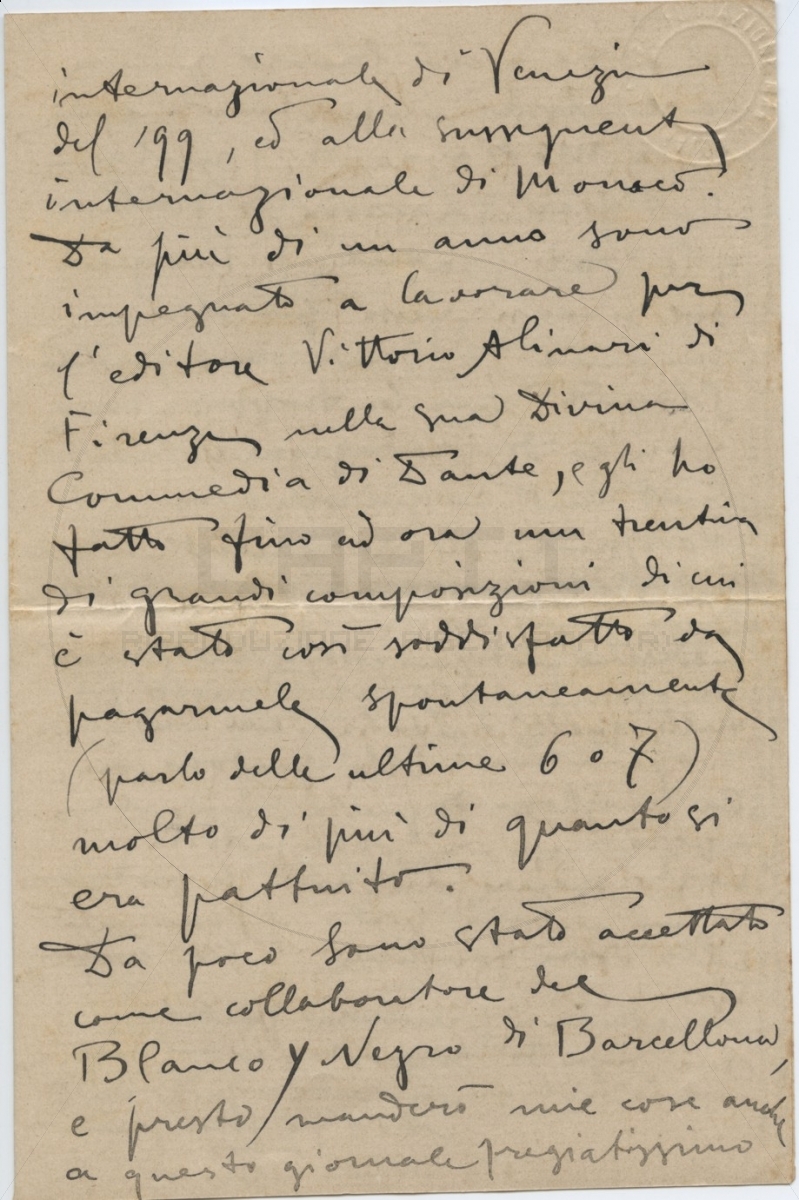 internazionale di Venezia
del '99, ed alla susseguente
internazionale di Monaco.
Da più di un anno sono
impegnato a lavorare per
l'editore Vittorio Alinari di
Firenze nella sua Divina
Commedia di Dante, egli ho
fatto fino ad ora una trentina
di grandi composizioni di cui
è stato così soddisfatto da
pagarmele spontaneamente
(parlo delle ultime 6 o 7)
molto di più di quanto si
era pattuito.
Da poco sono stato accettato
come collaboratore del
Blanco y Negro di Barcellona,
e presto manderò mie cose anche
a questo giornale pregiatissimo